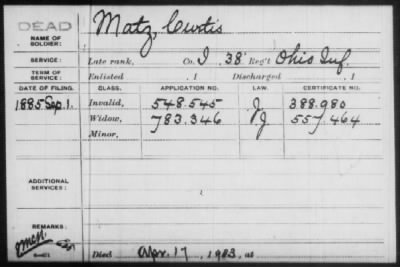 DEAD
NAME OF SOLDIER: Matz, Curtis
SERVICE: Late rank, Co. I 38 Reg't Ohio Inf.
TERM OF SERVICE: Enlisted , 1 Discharged , 1
DATE OF FILING. CLASS. APPLICATION NO. LAW. CERTIFICATE NO.
1885 Sep. 1. Invalid, 548.545 J 388.980
Widow, 783.346 J. 557.464
Minor,
ADDITIONAL SERVICES:
REMARKS:
Died Apr. 17, 1903, at